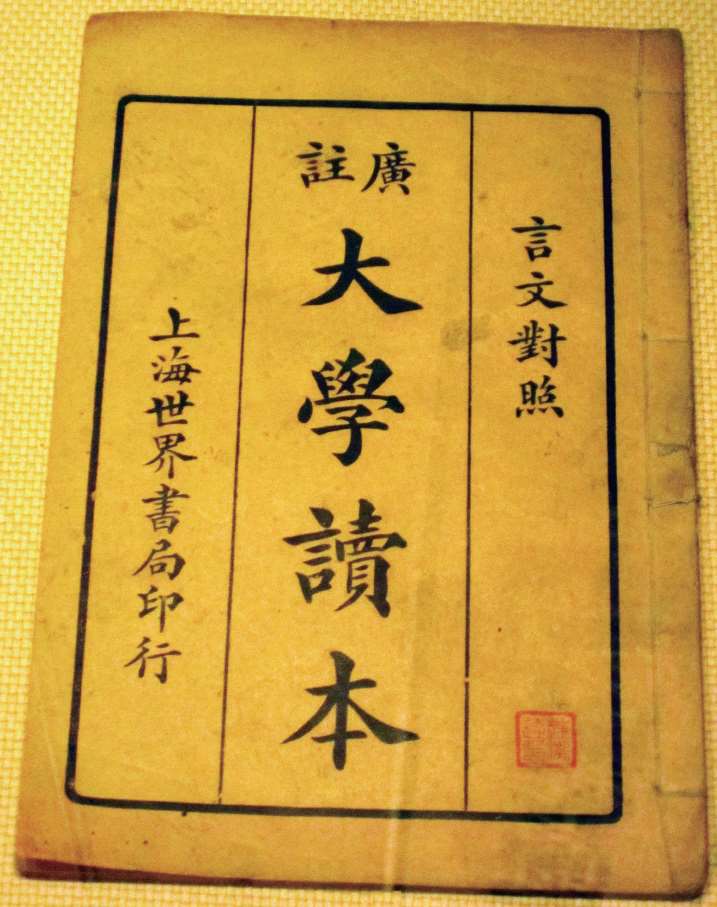 言文對照
廣註
大學讀本
上海世界書局印行